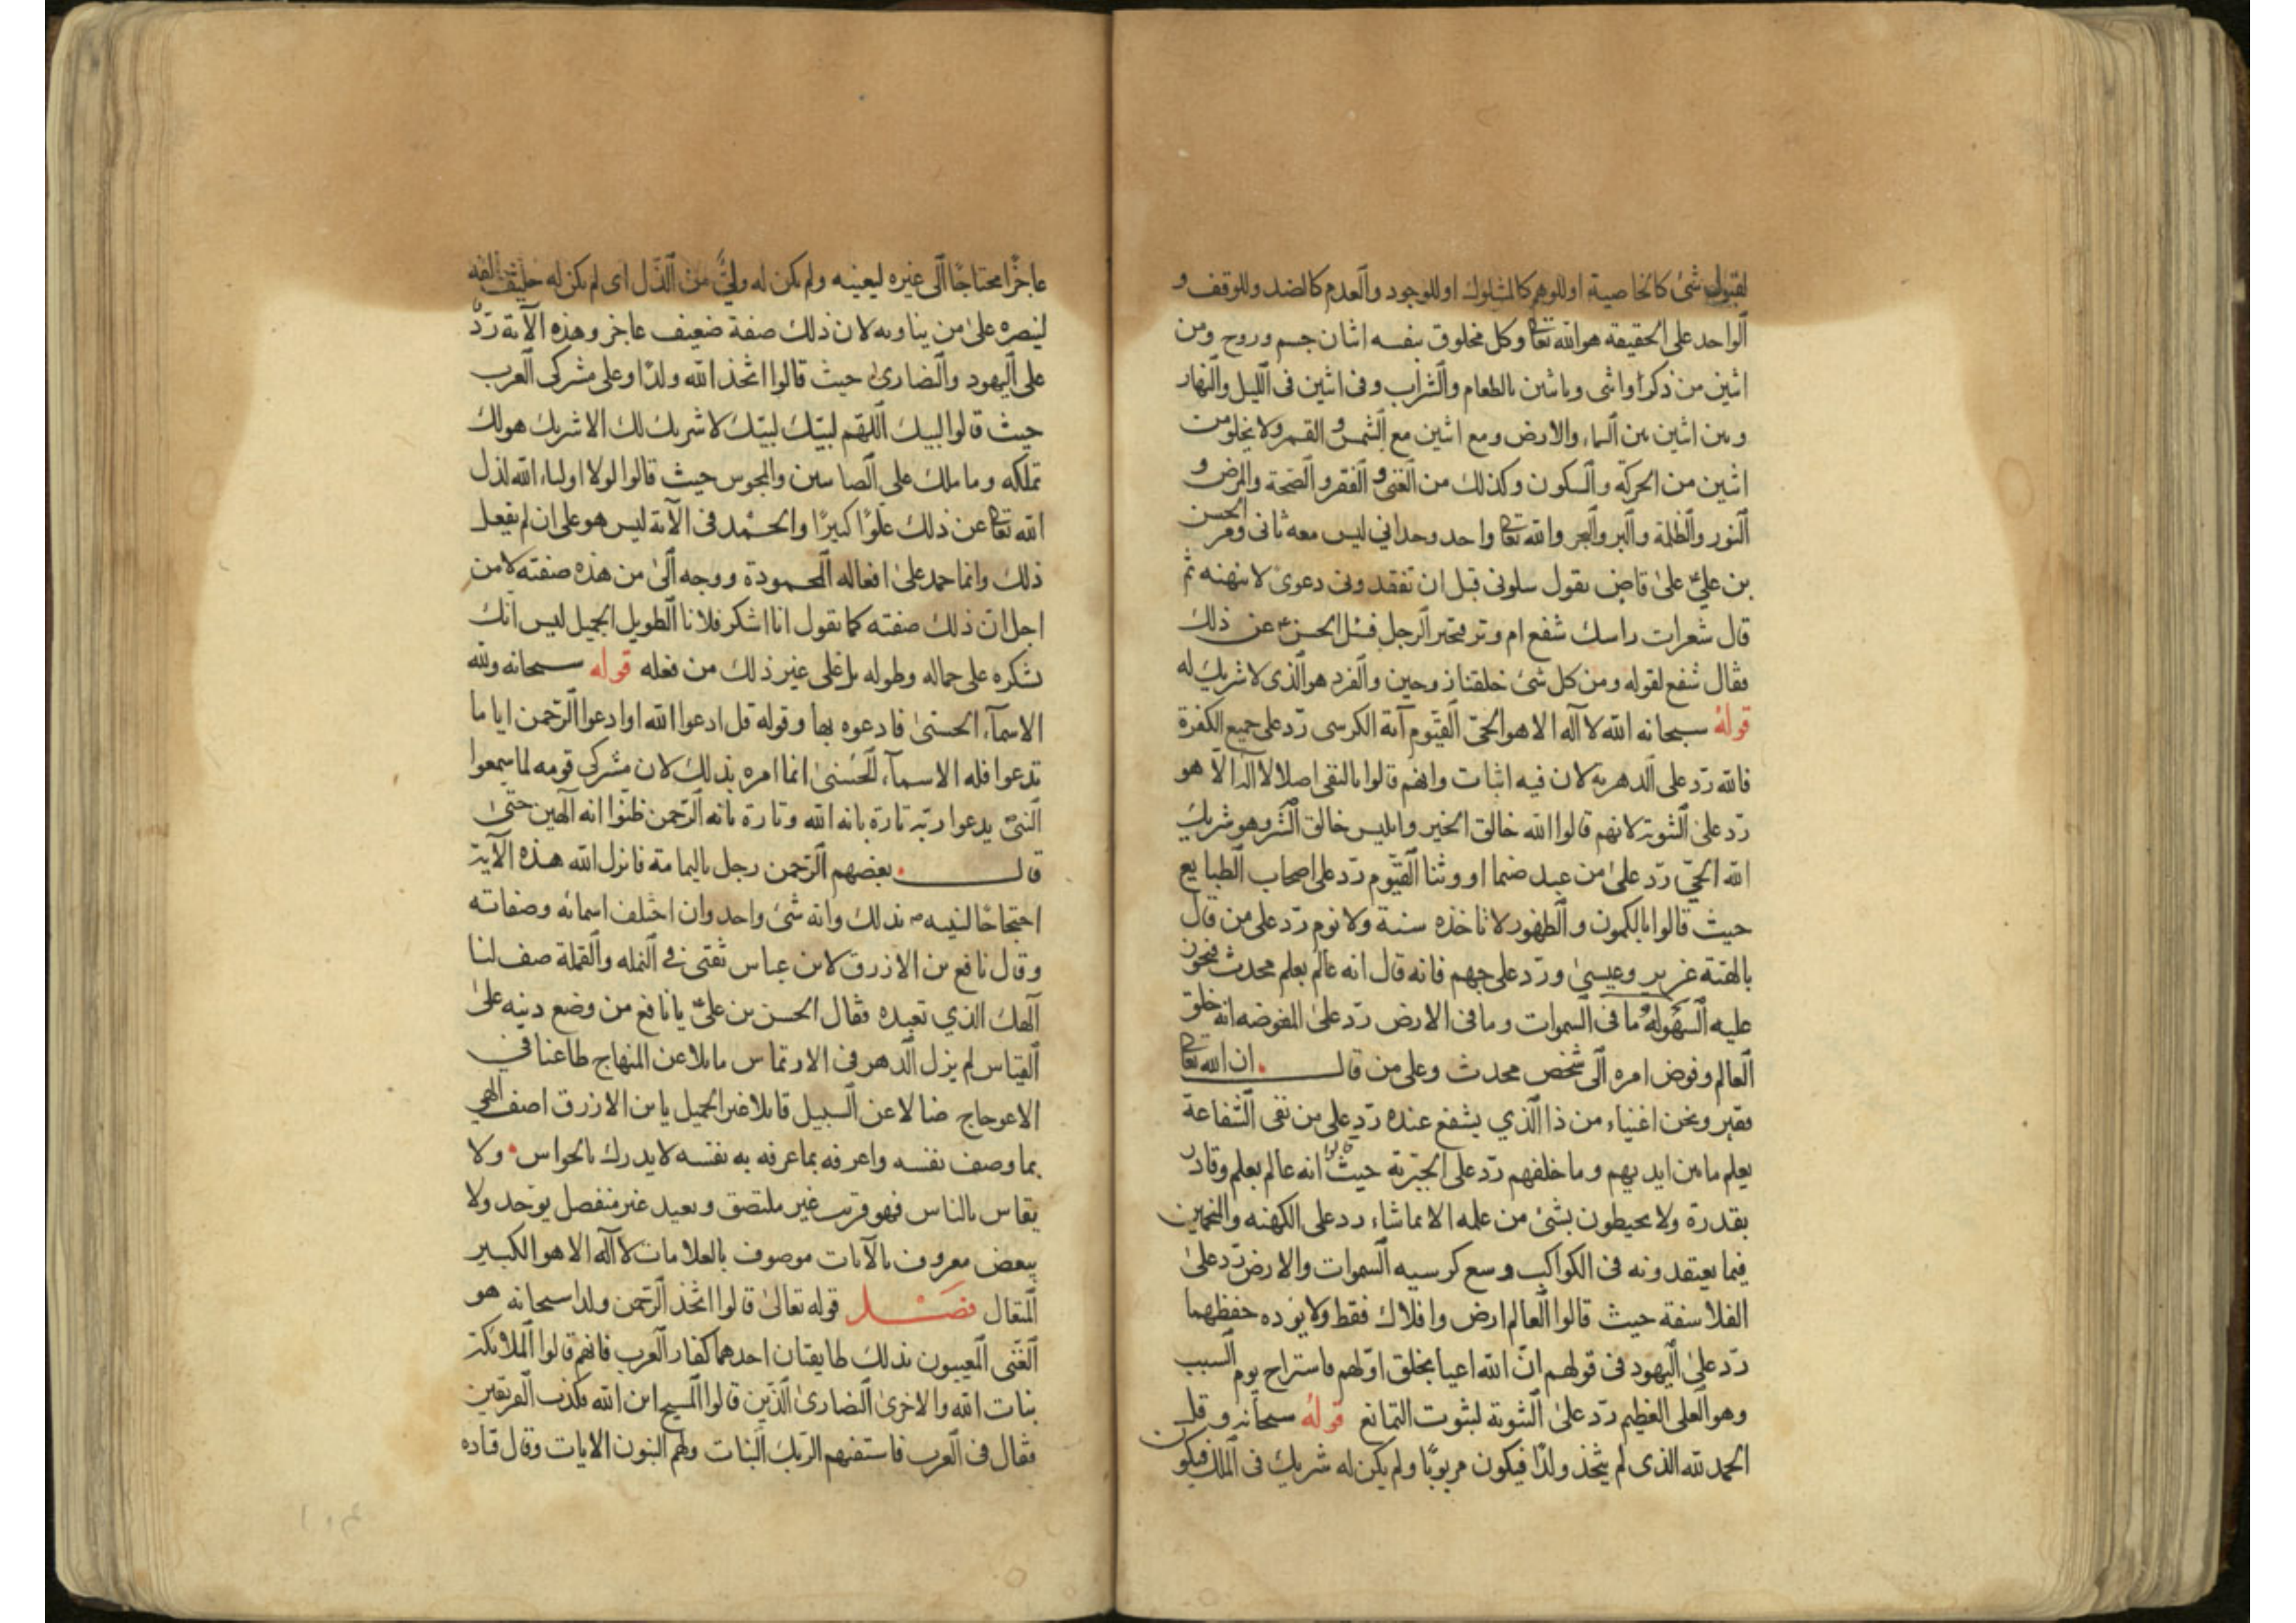 لقبول شئ كالخاصية او للوهم كالمشلوك او للوجود والعدم كالضد وللوقف و
الواحد على الحقيقة هو الله تعا وكل مخلوق بنفسه اثنان جسم وروح ومن
اثنين من ذكر او انثى وباثنين بالطعام والشراب وفى اثنين فى الليل والنهار
وبين اثنين بين السماء والارض ومع اثنين مع الشمس والقمر ولا يخلو من
اثنين من الحركة والسكون وكذلك من الغنى والفقر والصحة والمرض و
النور والظلمة والبر والبحر والله تعا واحد وحدانى ليس معه ثانى ومر الحسن
بن على على قاص يقول سلونى قبل ان تفقدونى دعوى لا ينهنه ثم
قال شعرات راسك شفع ام وتر فتحير الرجل فسئل الحسن عن ذلك
فقال شفع لقوله ومن كل شئ خلقنا زوجين والفرد هو الذى لا شريك له
قوله سبحانه الله لا آله الا هو الحى القيوم آية الكرسى رد على جميع الكفرة
فالله رد على الدهرية لان فيه اثبات وانهم قالوا بالنفى اصلا لا اله الا هو
رد على الثنوية لانهم قالوا الله خالق الخير وابليس خالق الشر وهو شريك
الله الحى رد على من عبد صنما او وثنا القيوم رد على اصحاب الطبايع
حيث قالوا بالكمون والظهور لا تاخذه سنة ولا نوم رد على من قال
بالهتة عزير وعيسى ورد على جهم فانه قال انه عالم بعلم محدث فيجوز
عليه السهو له ما فى السموات وما فى الارض رد على المفوضه انه خلق
العالم وفوض امره الى شخص محدث وعلى من قال ان الله تعا
فقير ونحن اغنياء من ذا الذي يشفع عنده رد على من نفى الشفاعة
يعلم ما بين ايديهم وما خلفهم رد على الجبرية حيث انه عالم بعلم وقادر
بقدرة ولا يحيطون بشئ من علمه الا بما شاء رد على الكهنه والمنجمين
فيما يعتقدونه فى الكواكب وسع كرسيه السموات والارض رد على
الفلاسفة حيث قالوا العالم ارض وافلاك فقط ولا يؤده حفظهما
رد على اليهود فى قولهم ان الله اعيا بخلق اولهم فاستراح يوم السبب
وهو العلى العظيم رد على الثنوية لثبوت التمانع قوله سبحانه وقل
الحمد لله الذى لم يتخذ ولدا فيكون مربوبا ولم يكن له شريك فى الملك فيكون
عاجزا محتاجا الى غيره ليعينه ولم يكن له ولى من الذل اى لم يكن له حليف
لينصره على من يناويه لان ذلك صفة ضعيف عاجز وهذه الآية رد
على اليهود والنصارى حيث قالوا اتخذ الله ولدا وعلى مشركى العرب
حيث قالوا لبيك اللهم لبيك لبيك لا شريك لك الا شريك هو لك
تملكه وما ملك على الصابئين والمجوس حيث قالوا لولا اولياء الله لذل
الله تعا عن ذلك علوا كبيرا والحمد فى الآية ليس هو على ان لم يفعل
ذلك وانما حمد على افعاله المحمودة ووجه الى من هذه صفته لا من
اجل ان ذلك صفته كما تقول انا اشكر فلانا الطويل الجميل ليس انك
تشكره على جماله وطوله بل على غير ذلك من فعله قوله سبحانه ولله
الاسمآء الحسنى فادعوه بها وقوله قل ادعوا الله او ادعوا الرحمن ايا ما
تدعوا فله الاسمآء الحسنى انما امره بذلك لان مشركى قومه لما سمعوا
النبى يدعوا ربه تارة بانه الله وتارة بانه الرحمن ظنوا انه آلهين حتى
قال بعضهم الرحمن رجل باليمامة فانزل الله هذه الآية
احتجاجا لنبيه بذلك وانه شئ واحد وان اختلف اسمائه وصفاته
وقال نافع بن الازرق لابن عباس تفتى في النمله والقملة صف لنا
آلهك الذي تعبده فقال الحسن بن على يا نافع من وضع دينه على
القياس لم يزل الدهر فى الارتماس مايلا عن المنهاج طاعنا في
الاعوجاج ضالا عن السبيل قايلا غير الجميل يا بن الازرق اصف الهي
بما وصف نفسه واعرفه بما عرفه به نفسه لا يدرك بالحواس ولا
يقاس بالناس فهو قريب غير ملتصق وبعيد غير منفصل يوحد ولا
يبعض معروف بالآيات موصوف بالعلامات لا آله الا هو الكبير
المتعال فصل قوله تعالى قالوا اتخذ الرحمن ولدا سبحانه هو
الغنى المعيبون بذلك طايفتان احدهما كفار العرب فانهم قالوا الملائكة
بنات الله والاخرى النصارى الذين قالوا المسيح ابن الله فكذب الفريقين
فقال فى العرب فاستفتهم الربك البنات ولهم البنون الايات وقال قتاده